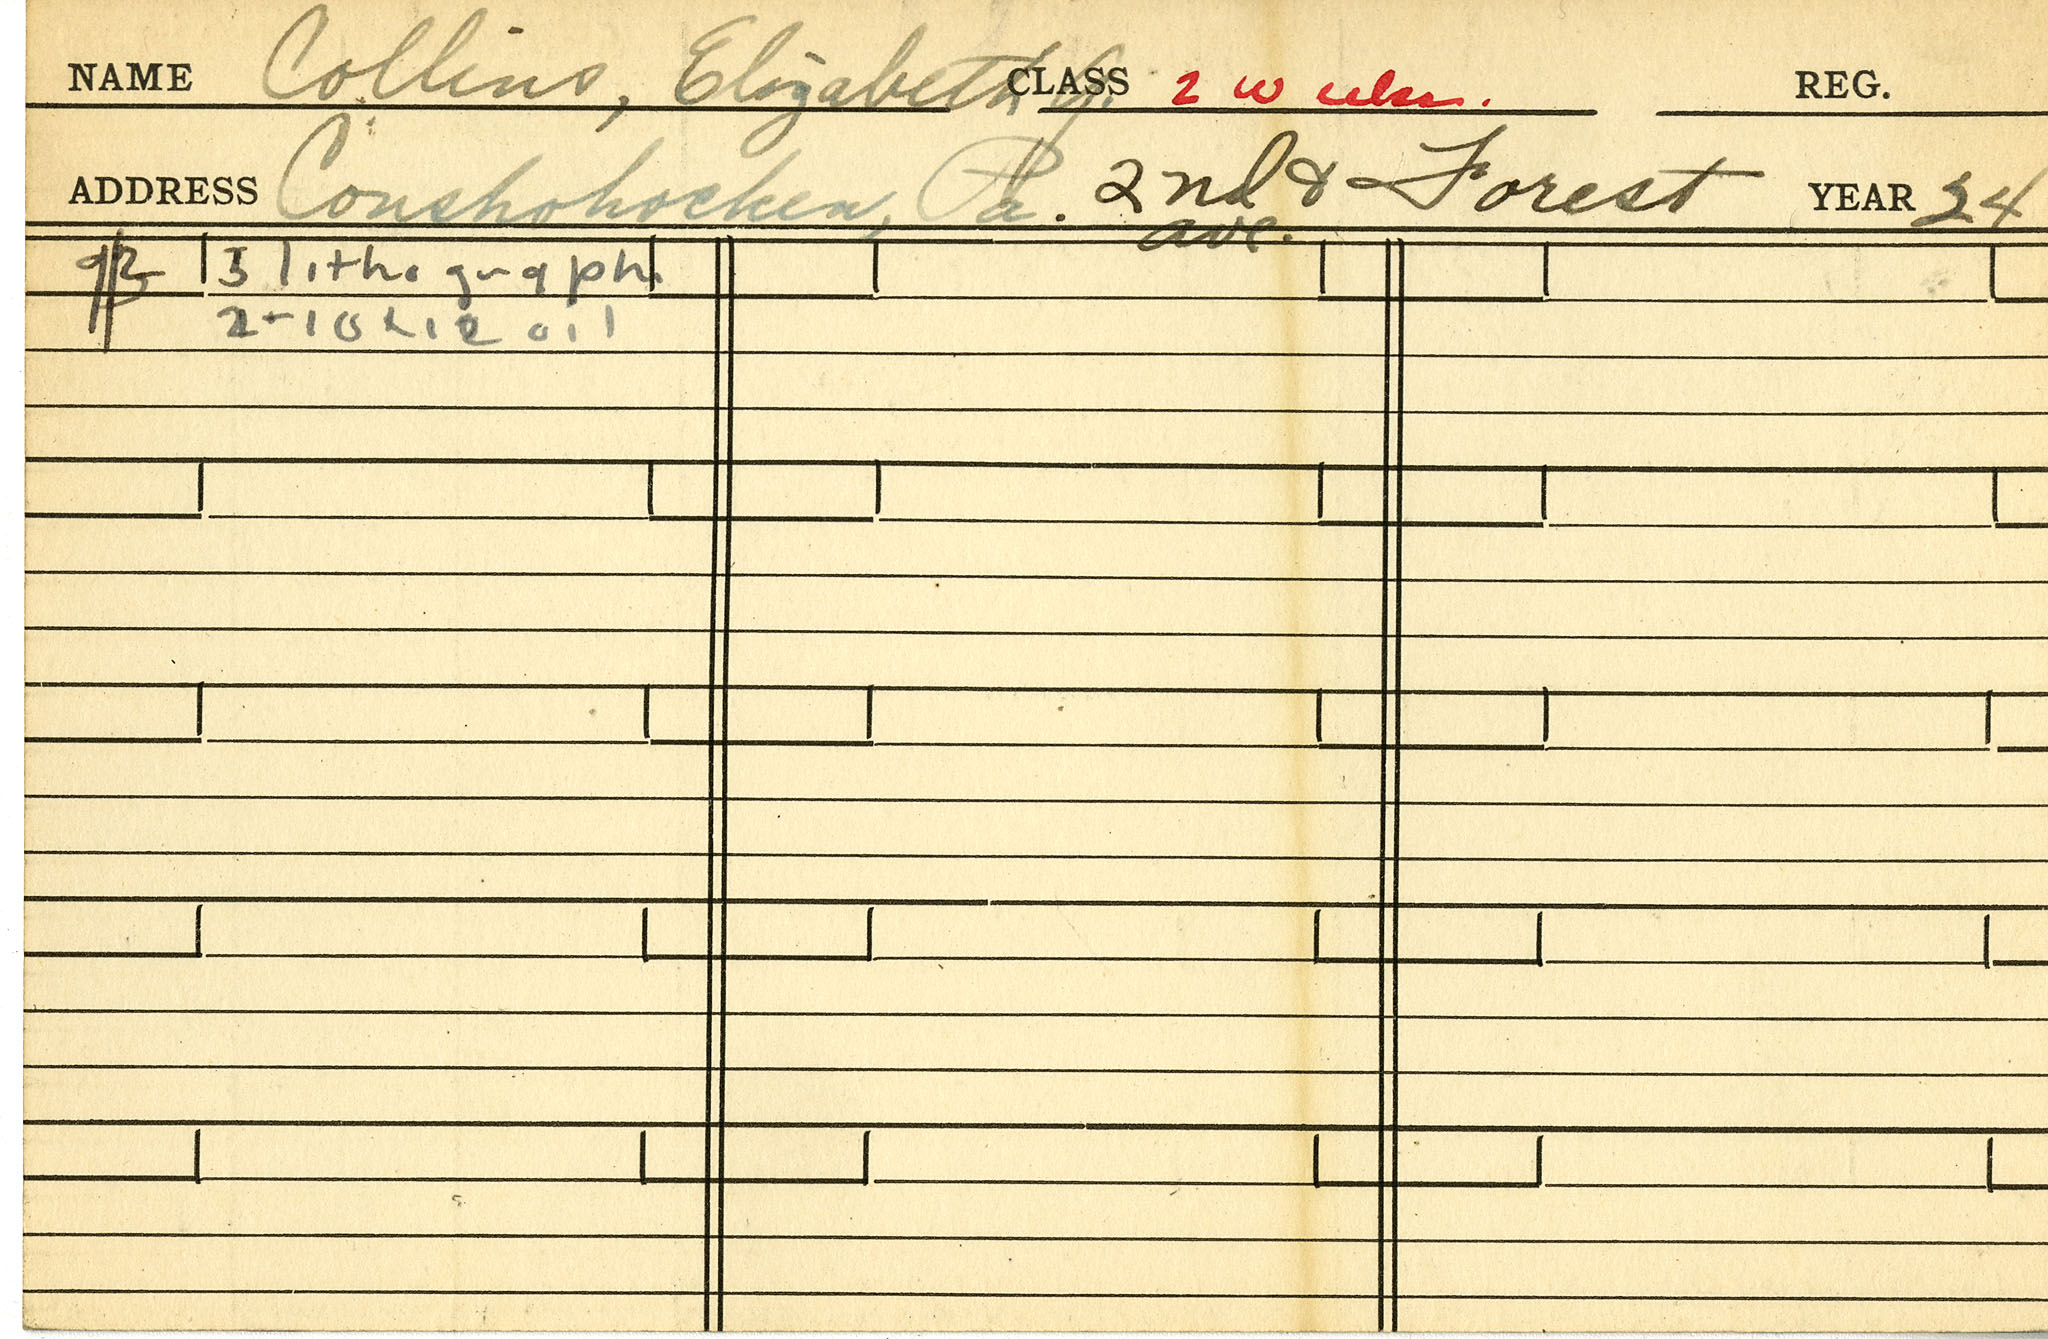 NAME Collins, Elizabeth J. CLASS 2 weeks. REG.
ADDRESS Conshohocken, Pa. 2nd & Forest YEAR 24
ave.
3 lithograph
2-10 x 12 oil